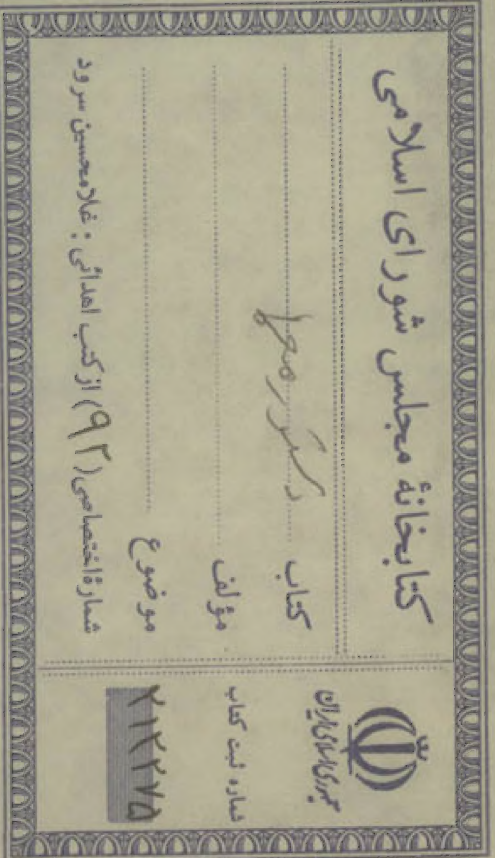 کتابخانهٔ مجلس شورای اسلامی
کتاب
مؤلف
موضوع
شمارهٔ اختصاصی (۹۲) از کتب اهدائی : غلامحسین سرود
جمهوری اسلامی ایران
شماره ثبت کتاب
۲۱۲۲۷۵